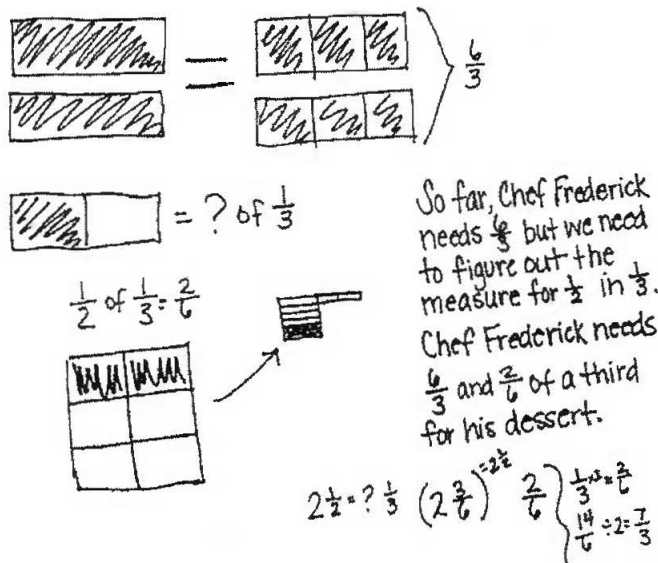 = 6/3
= ? of 1/3
1/2 of 1/3 = 2/6
So far, Chef Frederick
needs 6/3 but we need
to figure out the
measure for 1/2 in 1/3.
Chef Frederick needs
6/3 and 2/6 of a third
for his dessert.
2 1/2 = ? 1/3 (2 3/6) = 2 1/2 2/6
1/3 = 2/6
14/6 ÷ 2 = 7/3